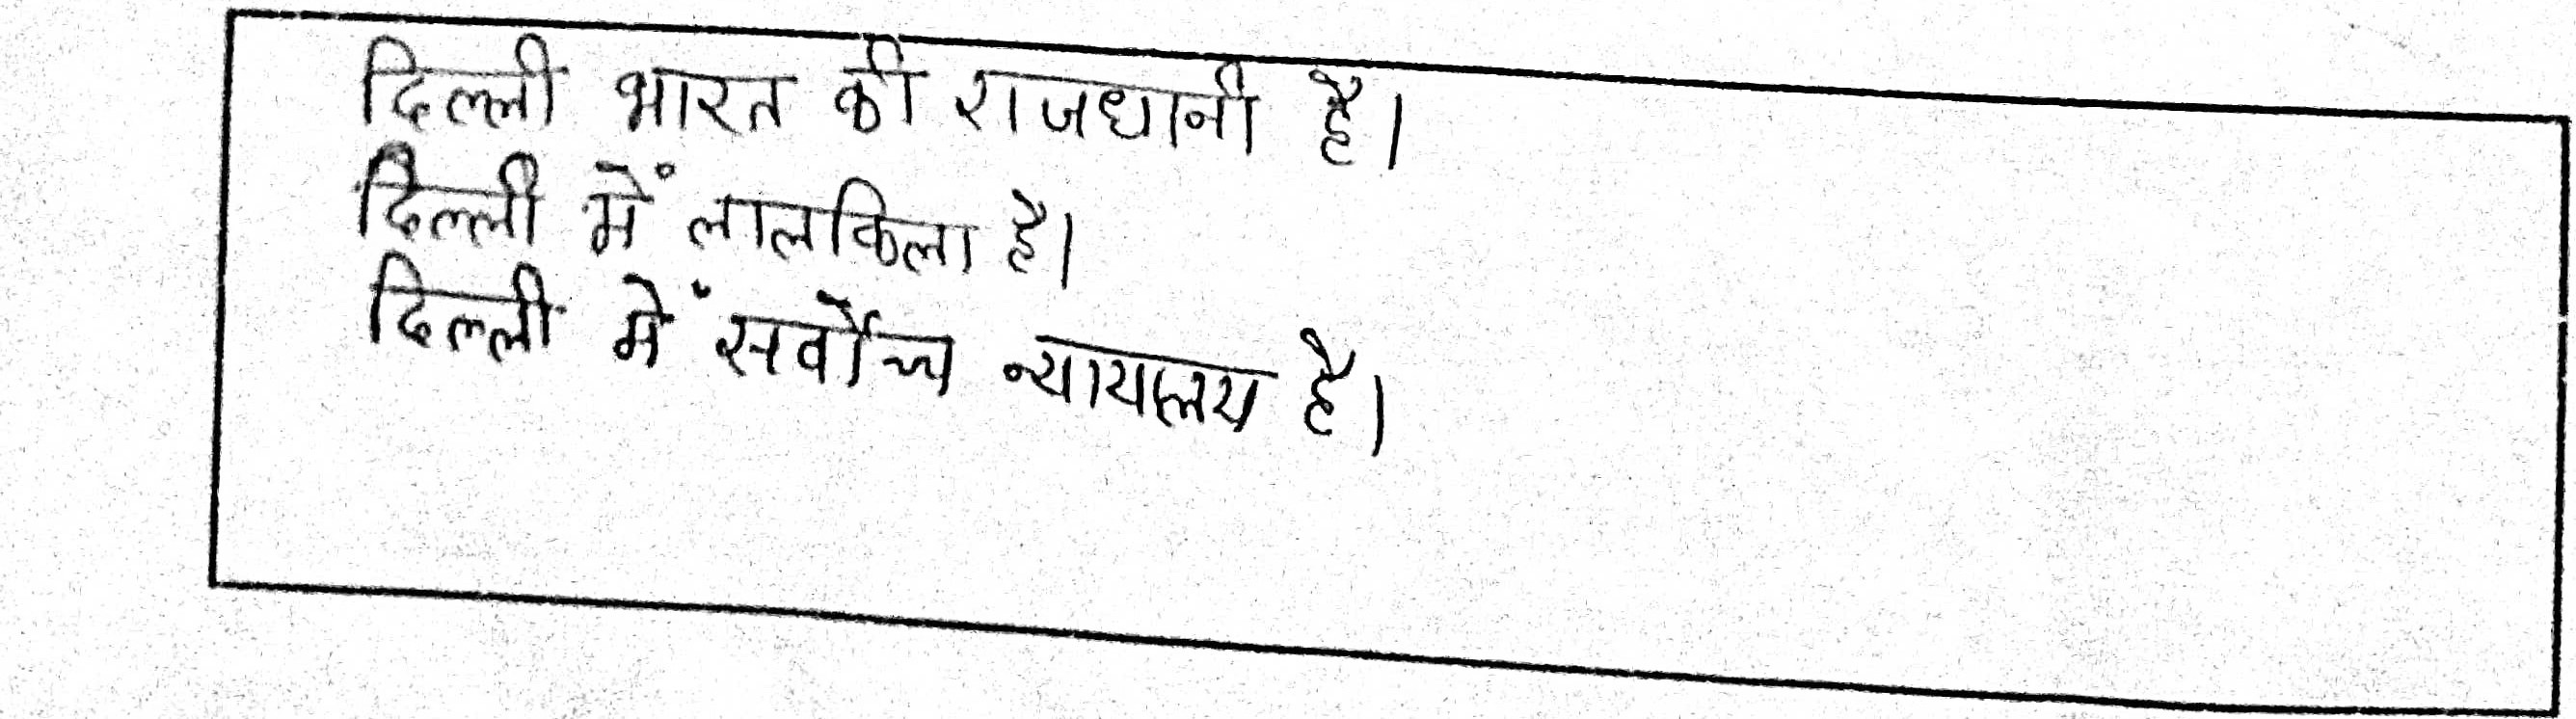 दिल्ली भारत की राजधानी है।
दिल्ली में लालकिला है।
दिल्ली में सर्वोच्च न्यायलय है।